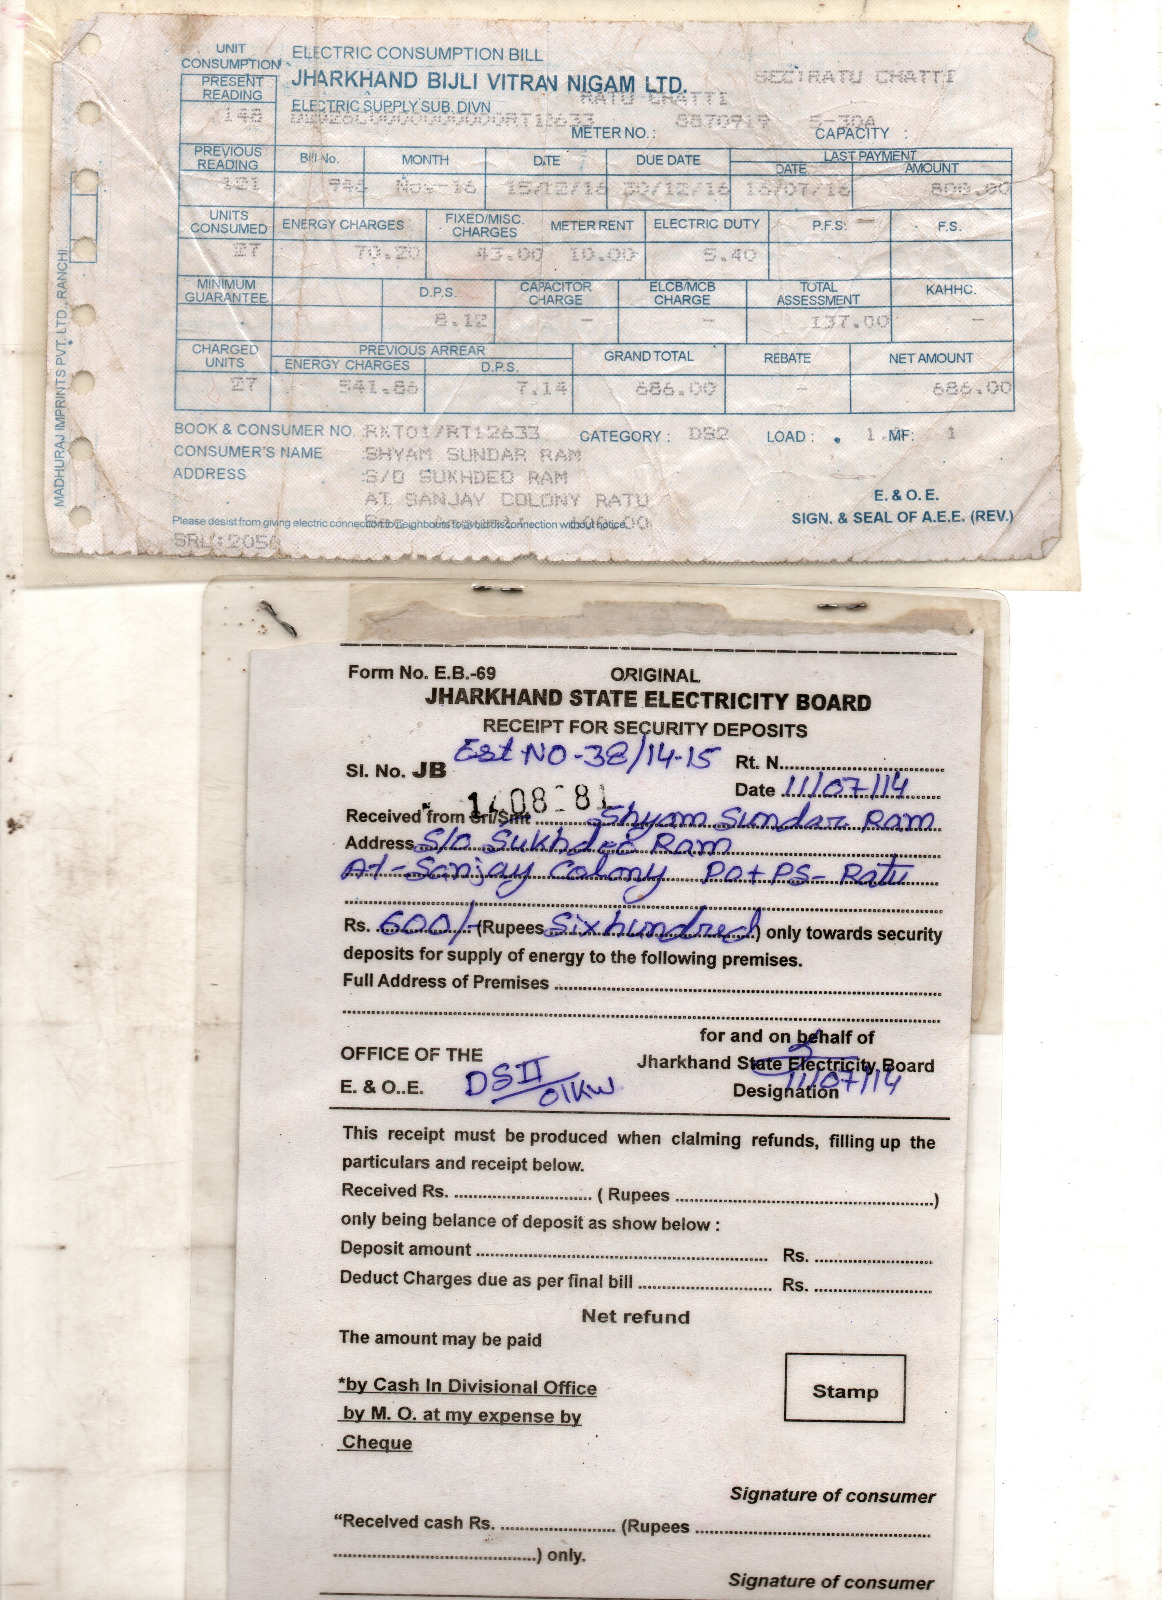 UNIT CONSUMPTION ELECTRIC CONSUMPTION BILL
PRESENT READING JHARKHAND BIJLI VITRAN NIGAM LTD. SEC:RATU CHATTI
ELECTRIC SUPPLY SUB. DIVN RATU CHATTI
148 METER NO.: 8870919 CAPACITY : 5-30A
PREVIOUS READING Bill No. MONTH DATE DUE DATE LAST PAYMENT
DATE AMOUNT
121 946 Nov-16 15/12/16 30/12/16 16/07/16 800.00
UNITS CONSUMED ENERGY CHARGES FIXED/MISC. CHARGES METER RENT ELECTRIC DUTY P.F.S. F.S.
27 70.20 43.00 10.00 5.40
MINIMUM GUARANTEE D.P.S. CAPACITOR CHARGE ELCB/MCB CHARGE TOTAL ASSESSMENT KAHHC.
8.12 - - 137.00 -
CHARGED UNITS PREVIOUS ARREAR GRAND TOTAL REBATE NET AMOUNT
ENERGY CHARGES D.P.S.
27 541.86 7.14 686.00 - 686.00
BOOK & CONSUMER NO. RKT01/RT12633 CATEGORY : DS2 LOAD : 1 MF: 1
CONSUMER'S NAME SHYAM SUNDAR RAM
ADDRESS S/O SUKHDEO RAM
AT SANJAY COLONY RATU
E. & O. E.
Please desist from giving electric connection to neighbours to avoid disconnection without notice.
SIGN. & SEAL OF A.E.E. (REV.)
SRL:2050
MADHURAJ IMPRINTS PVT. LTD., RANCHI
Form No. E.B.-69 ORIGINAL
JHARKHAND STATE ELECTRICITY BOARD
RECEIPT FOR SECURITY DEPOSITS
Est NO-38/14-15 Rt. N.
Sl. No. JB Date 11/07/14
1408181
Received from Sri/Smt Shyam Sundar Ram
Address S/o Sukhdeo Ram
At-Sanjay Colony Po+PS- Ratu
Rs. 600/- (Rupees Six hundred) only towards security
deposits for supply of energy to the following premises.
Full Address of Premises
for and on behalf of
OFFICE OF THE Jharkhand State Electricity Board
E. & O..E. DSII 01KW Designation 11/07/14
This receipt must be produced when claiming refunds, filling up the
particulars and receipt below.
Received Rs. ( Rupees )
only being belance of deposit as show below :
Deposit amount Rs.
Deduct Charges due as per final bill Rs.
Net refund
The amount may be paid
*by Cash In Divisional Office
by M. O. at my expense by
Cheque
Stamp
Signature of consumer
"Received cash Rs. (Rupees
) only.
Signature of consumer